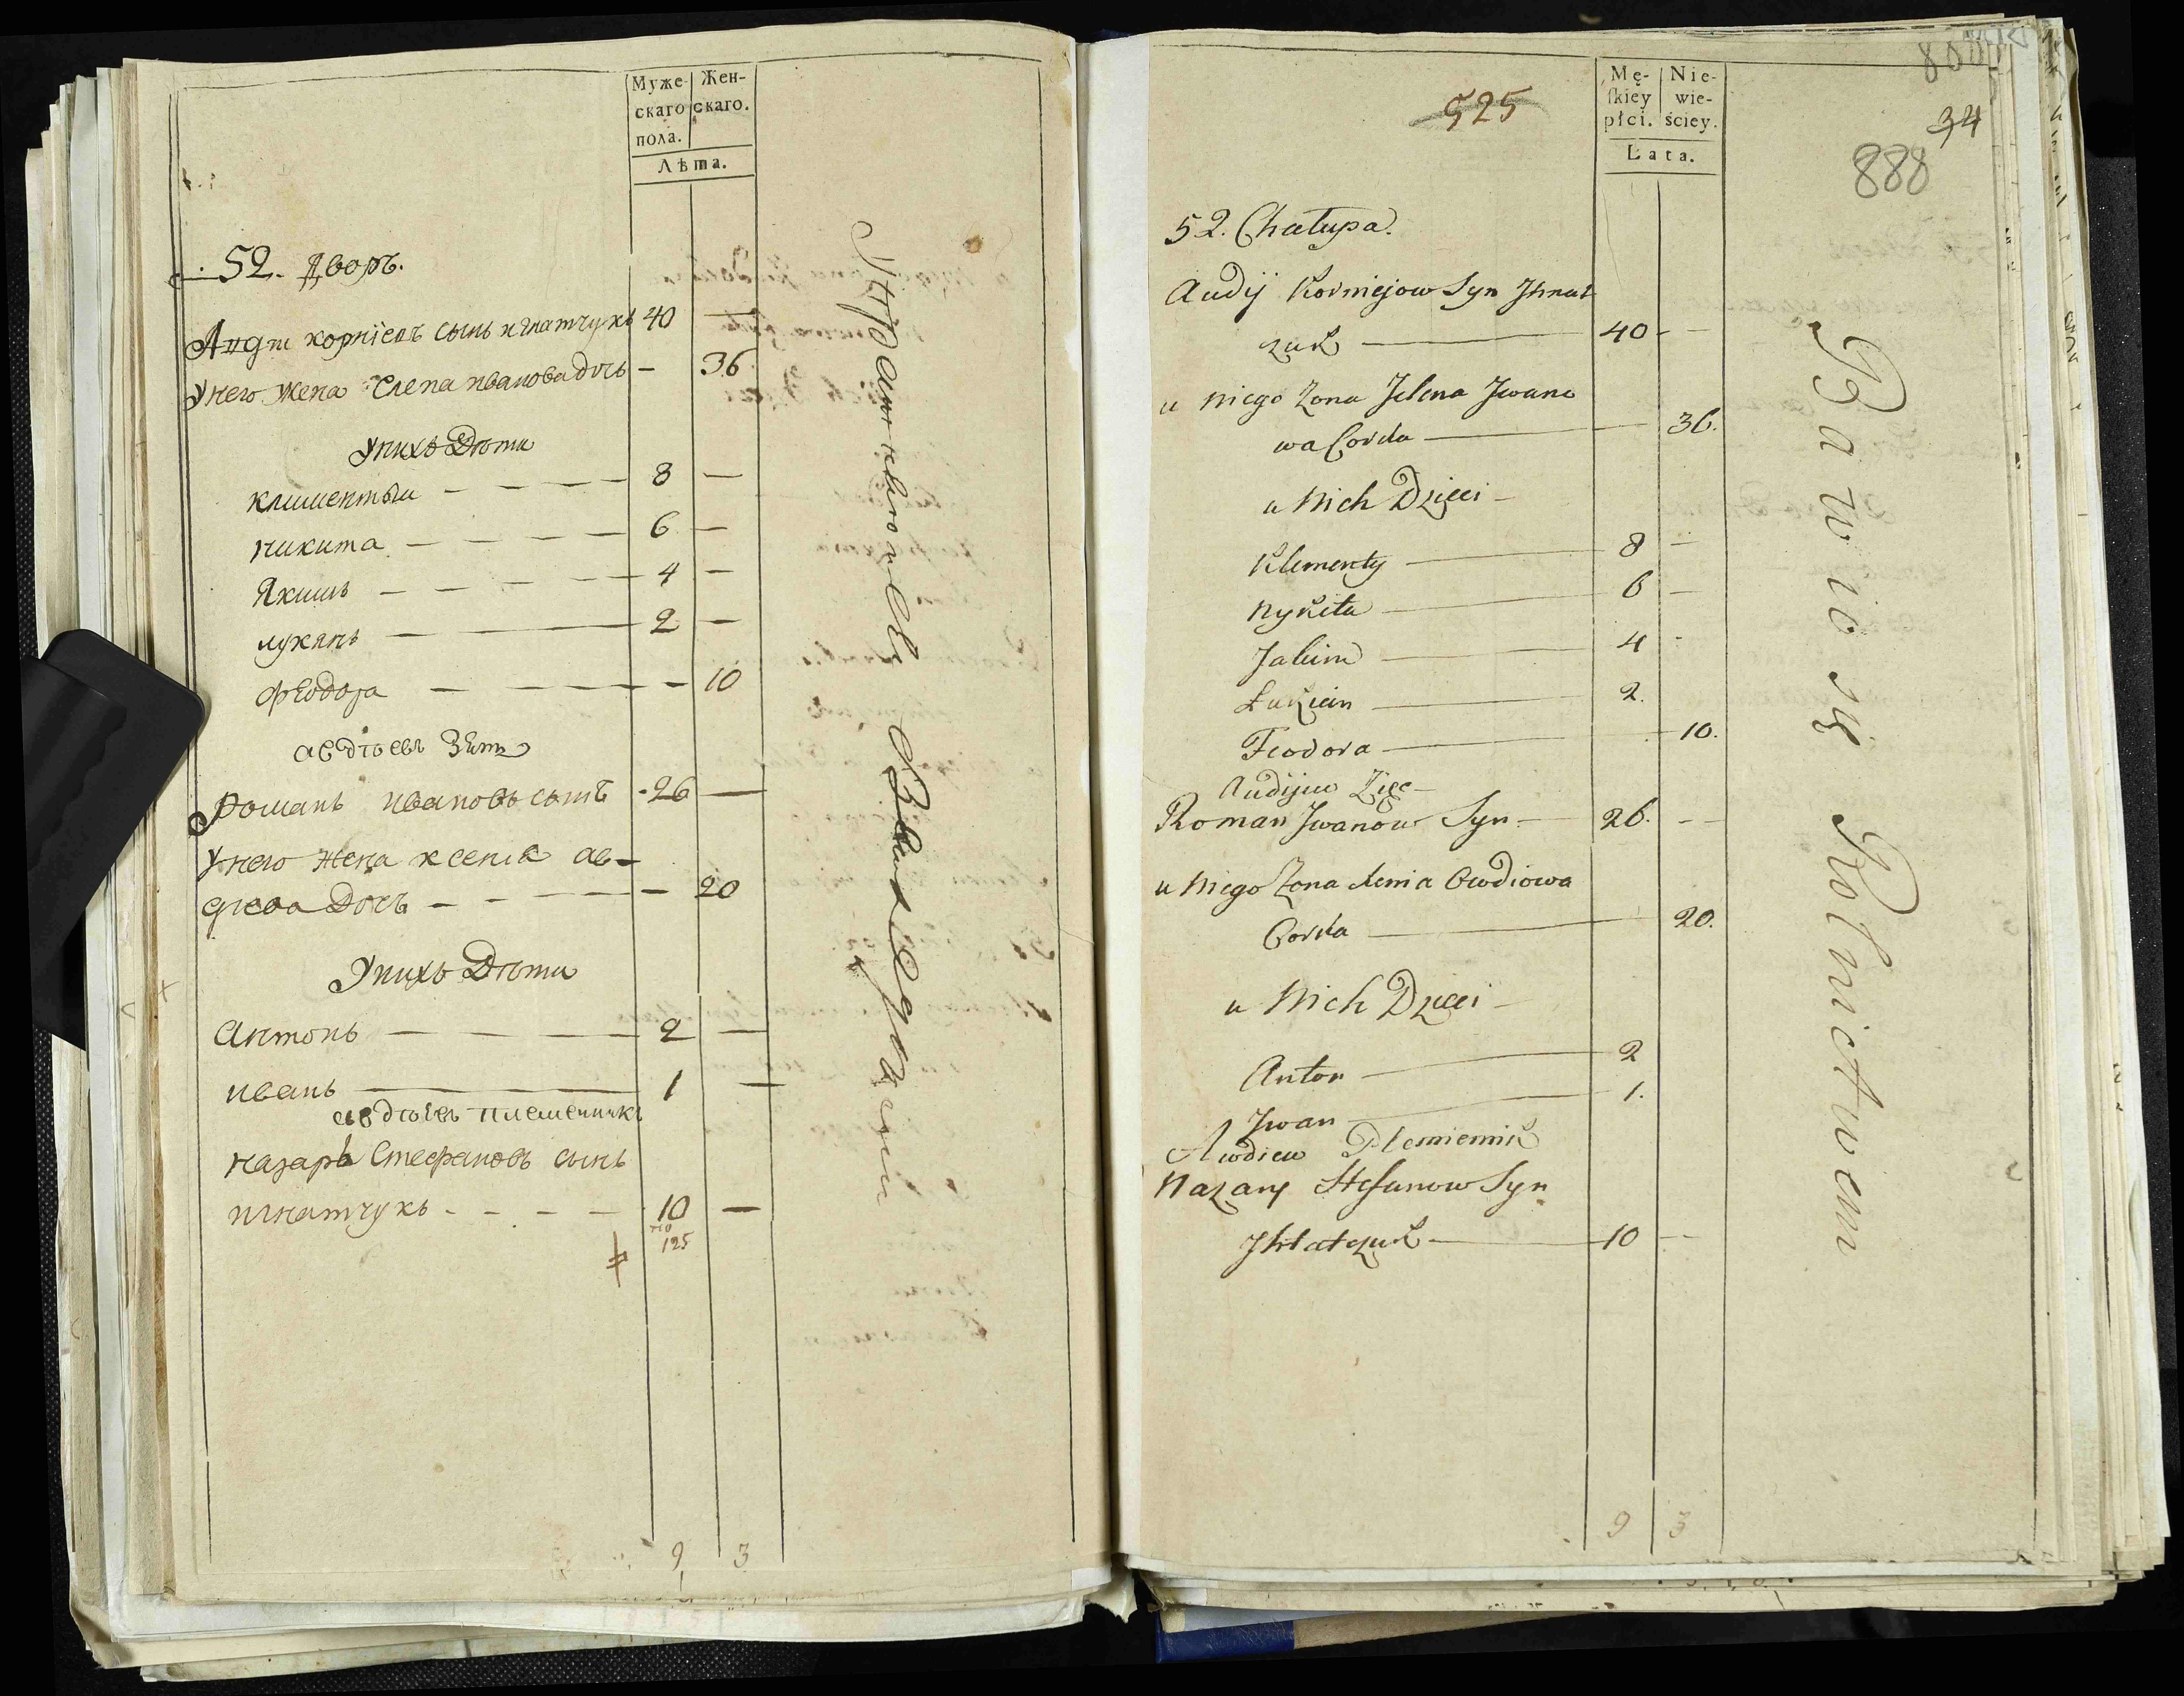 Муже- Жен-
скаго скаго.
пола.
Лѣта.
52. Дворъ.
Авдѣи корнѣевъ сынъ игнатчукъ 40 —
Унего жена Елена иванова дочь — 36
Унихъ Дѣти
климентыи — — — — 8 —
никита — — — — 6 —
Якимъ — — — — 4 —
лукянъ — — 2 —
феодора — — — — 10
авдѣевъ Зять
Романъ ивановъ сынъ 26 —
Унего жена ксения ав-
деева Дочь — — — — 20
Унихъ Дѣти
Антонъ — 2 —
иванъ — 1 —
авдѣевъ племенникъ
назаръ Стефановъ сынъ
игнатчукъ - - - - 10 —
125
9 3
Упражняются В Земледелии
525
Mę- Nie-
ſkiey wie-
płci. ściey.
Lata.
800
34
888
52. Chałupa.
Audij Korniejow Syn Ihnat
czuk — 40 - —
u niego Zona Jelena Iwano
wa Corka — 36.
u Nich Dzieci —
Klementy — 8 —
Nykita — 6 —
Jakim — 4 -
Łukian — 2.
Feodora — 10.
Audijiw Zięć —
Roman Iwanow Syn — 26. - —
u Niego Zona Xenia Owdiowa
Corka — 20.
u Nich Dzieci —
Anton — 2
Iwan — 1.
Awdiew Plemiennik
Nazary Stefanow Syn
Ihnatczuk — 10 - —
9 3
Bawio się Rolnictwem